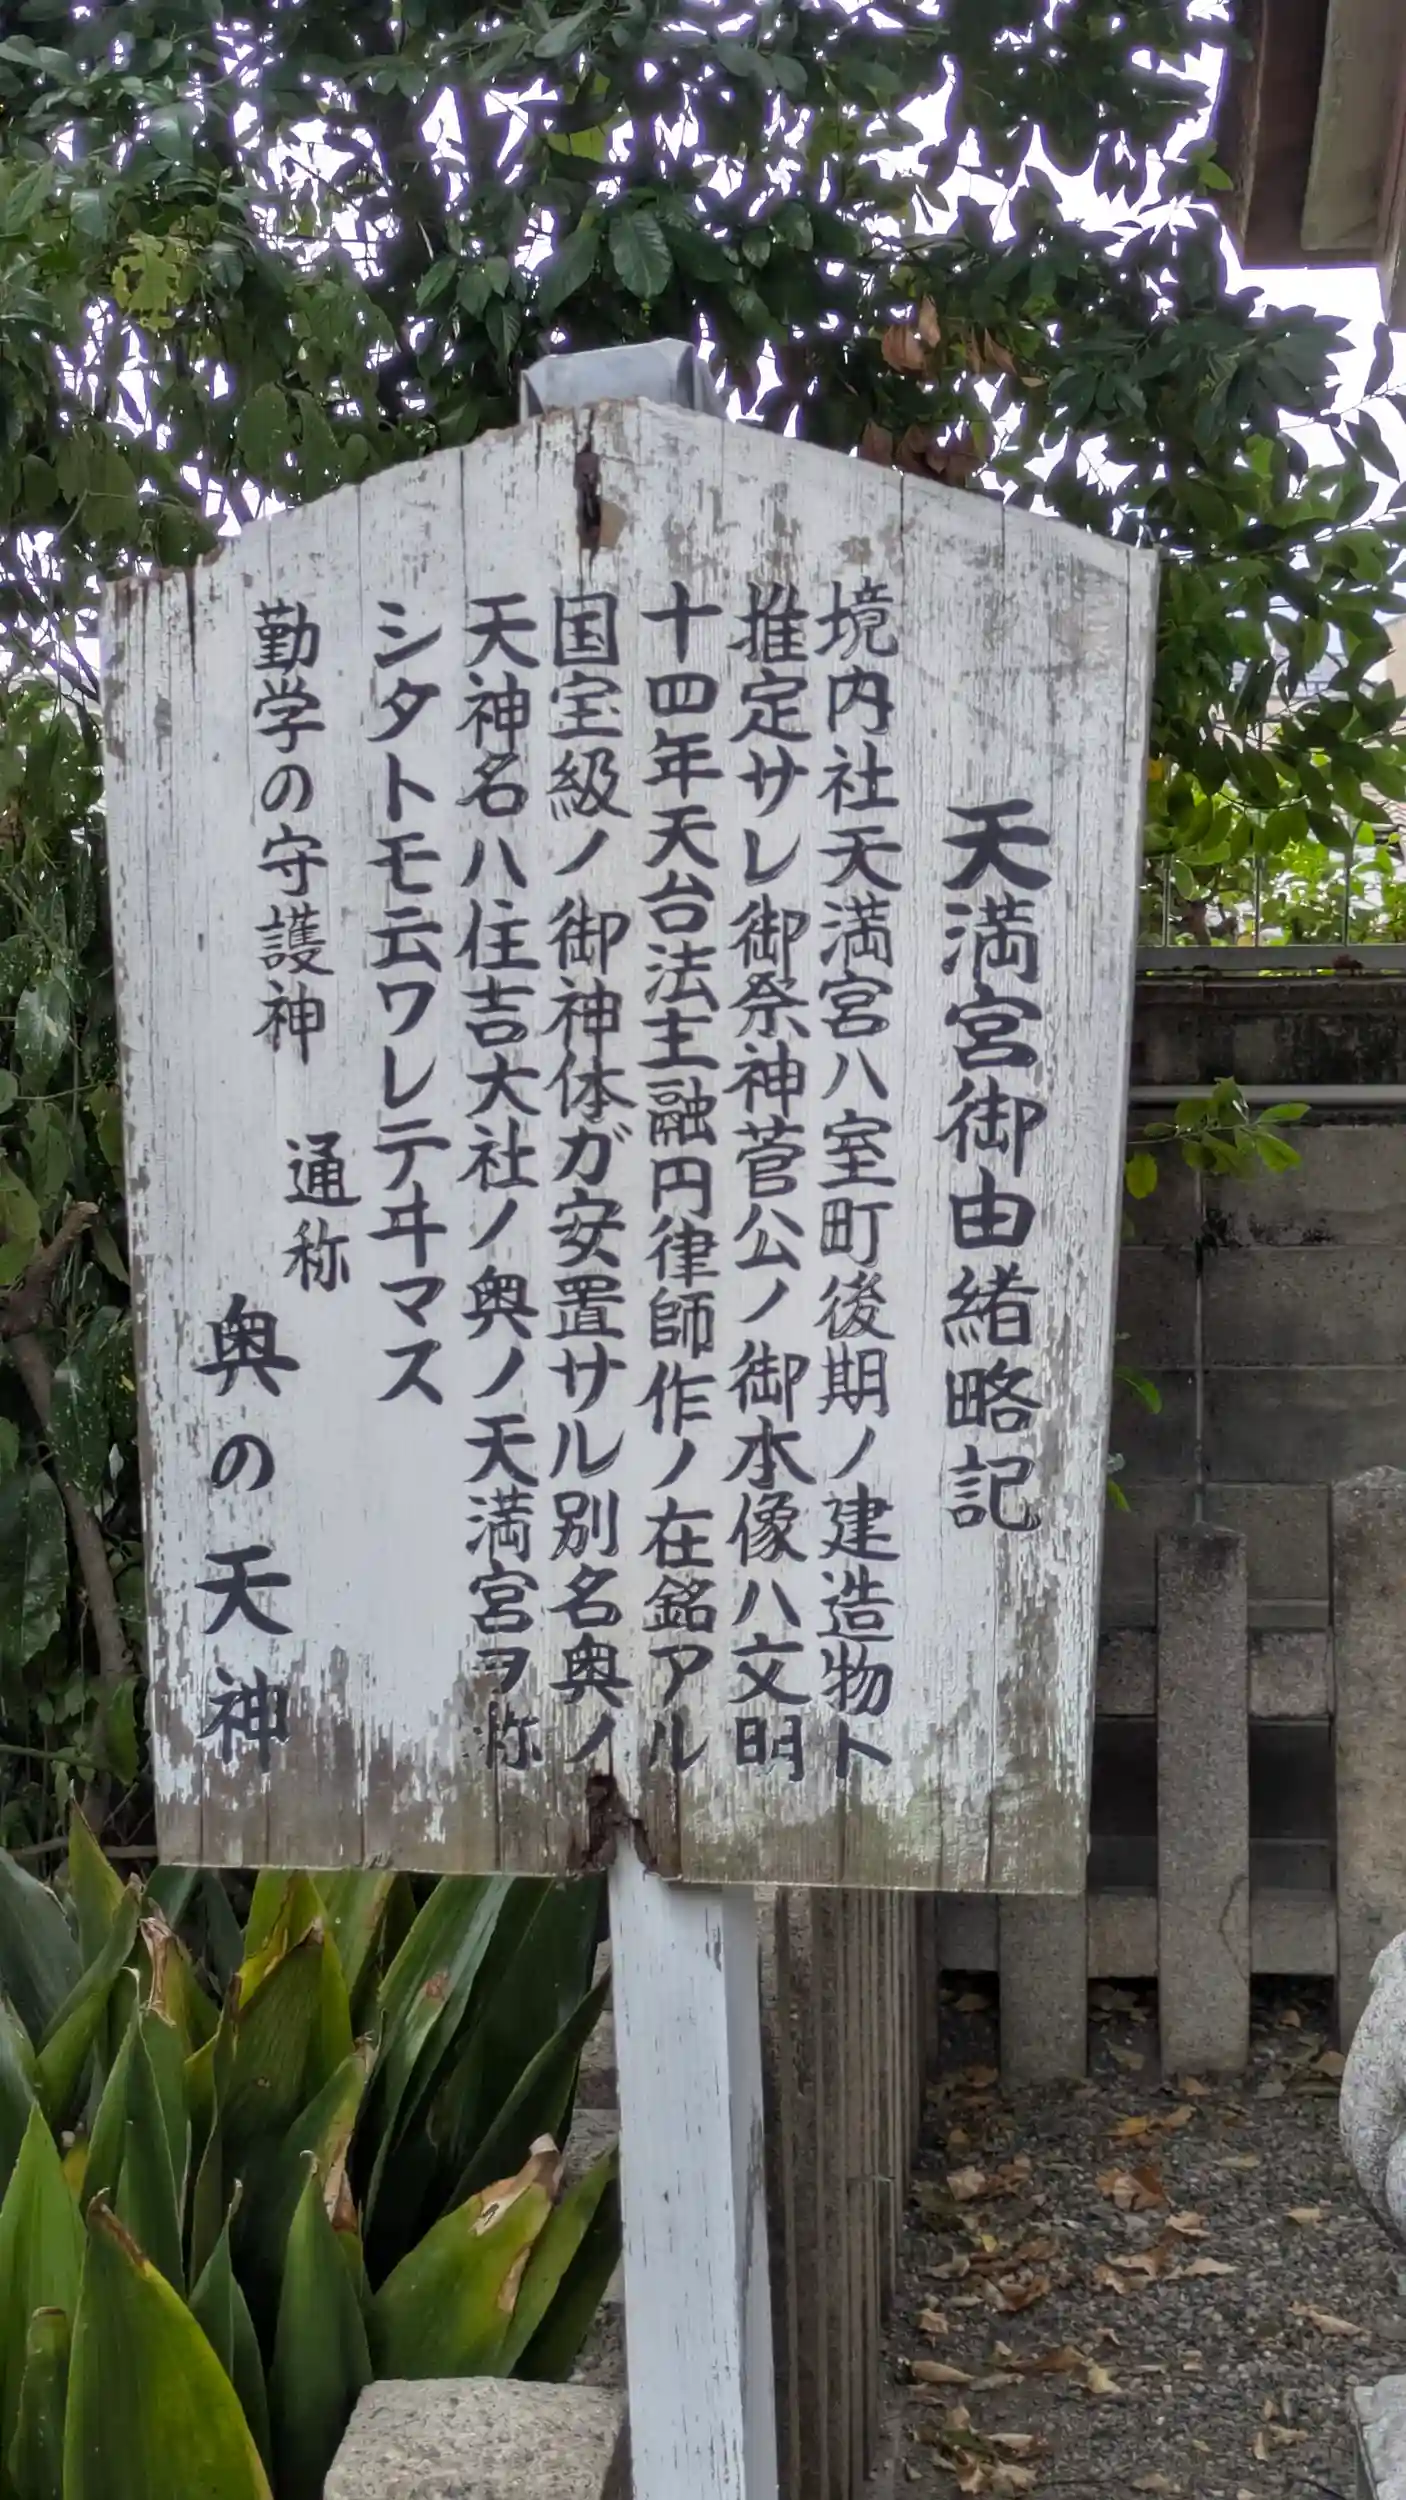 天満宮御由緒略記
境内社天満宮ハ室町後期ノ建造物ト
推定サレ御祭神菅公ノ御本像ハ文明
十四年天台法主融円律師作ノ在銘アル
国宝級ノ御神体ガ安置サル別名奥ノ
天神名ハ住吉大社ノ奥ノ天満宮ヲ称
シタトモ云ワレテヰマス
勤学の守護神
通称
奥の天神